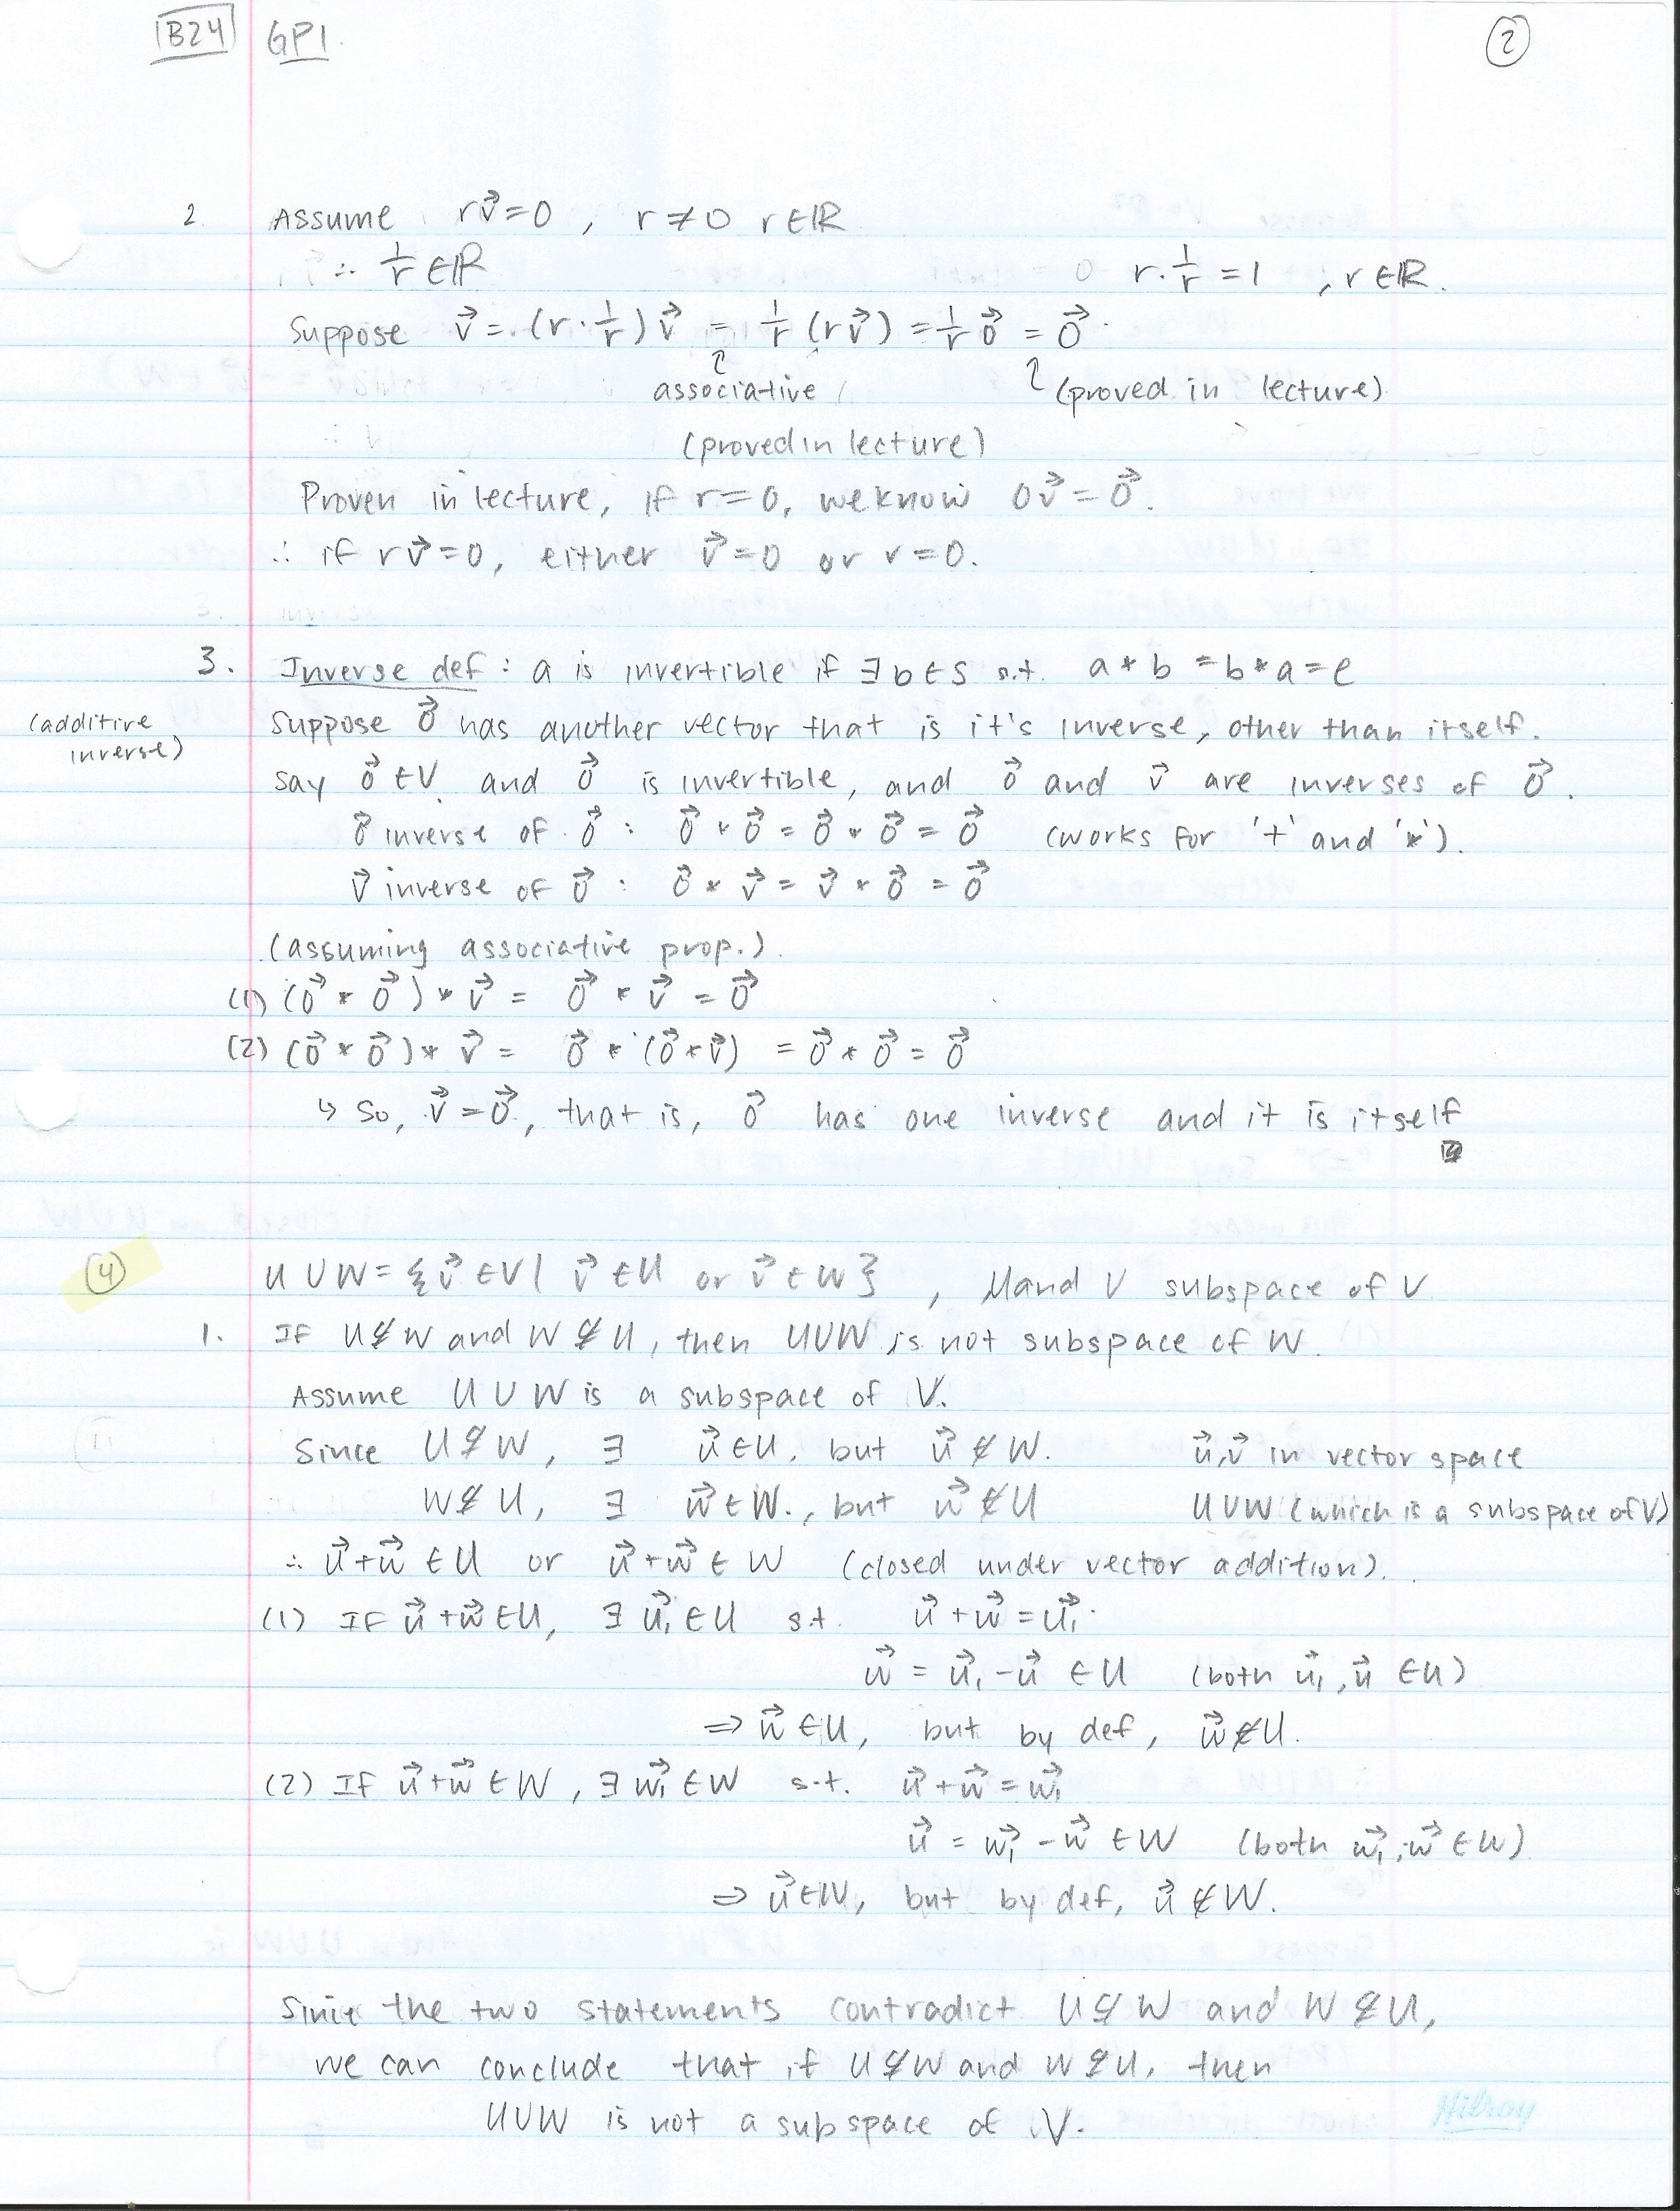 1B24 GP1. 2
2. Assume r v⃗ = 0 , r ≠ 0 r ∈ ℝ
∴ 1/r ∈ ℝ r · 1/r = 1 , r ∈ ℝ.
Suppose v⃗ = (r · 1/r) v⃗ = 1/r (r v⃗) = 1/r 0⃗ = 0⃗.
associative (proved in lecture)
(proved in lecture)
Proven in lecture, if r = 0, we know 0v⃗ = 0⃗.
∴ if r v⃗ = 0, either v⃗ = 0 or r = 0.
3. Inverse def : a is invertible if ∃ b ∈ S s.t. a * b = b * a = e
(additive inverse) Suppose 0⃗ has another vector that is it's inverse, other than itself.
Say 0⃗ ∈ V and 0⃗ is invertible, and 0⃗ and v⃗ are inverses of 0⃗.
0⃗ inverse of 0⃗ : 0⃗ * 0⃗ = 0⃗ * 0⃗ = 0⃗ (works for '+' and '*').
v⃗ inverse of 0⃗ : 0⃗ * v⃗ = v⃗ * 0⃗ = 0⃗
(assuming associative prop.)
(1) (0⃗ * 0⃗) * v⃗ = 0⃗ * v⃗ = 0⃗
(2) (0⃗ * 0⃗) * v⃗ = 0⃗ * (0⃗ * v⃗) = 0⃗ * 0⃗ = 0⃗
↳ So, v⃗ = 0⃗, that is, 0⃗ has one inverse and it is itself
4 U ∪ W = { v⃗ ∈ V | v⃗ ∈ U or v⃗ ∈ W } , U and V subspace of V
1. If U ⊈ W and W ⊈ U, then U∪W is not subspace of W.
Assume U ∪ W is a subspace of V.
Since U ⊈ W, ∃ u⃗ ∈ U, but u⃗ ∉ W. u⃗, v⃗ in vector space
W ⊈ U, ∃ w⃗ ∈ W., but w⃗ ∉ U U∪W (which is a subspace of V)
∴ u⃗ + w⃗ ∈ U or u⃗ + w⃗ ∈ W (closed under vector addition).
(1) If u⃗ + w⃗ ∈ U, ∃ u⃗₁ ∈ U s.t. u⃗ + w⃗ = u⃗₁.
w⃗ = u⃗₁ - u⃗ ∈ U (both u⃗₁, u⃗ ∈ U)
⇒ w⃗ ∈ U, but by def, w⃗ ∉ U.
(2) If u⃗ + w⃗ ∈ W, ∃ w⃗₁ ∈ W s.t. u⃗ + w⃗ = w⃗₁
u⃗ = w⃗₁ - w⃗ ∈ W (both w⃗₁, w⃗ ∈ W)
⇒ u⃗ ∈ W, but by def, u⃗ ∉ W.
Since the two statements contradict U ⊈ W and W ⊈ U,
we can conclude that if U ⊈ W and W ⊈ U, then
U∪W is not a subspace of V.
Hilroy